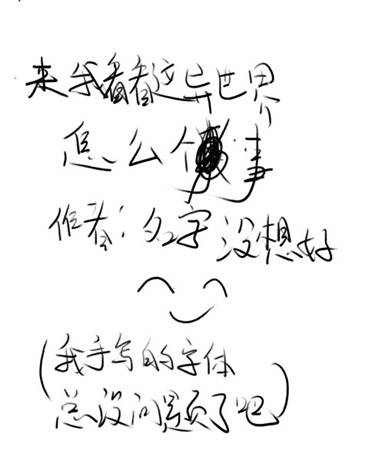 来我看看这异世界
怎么个事
作者：名字没想好
（我手写的字体
总没问题了吧）